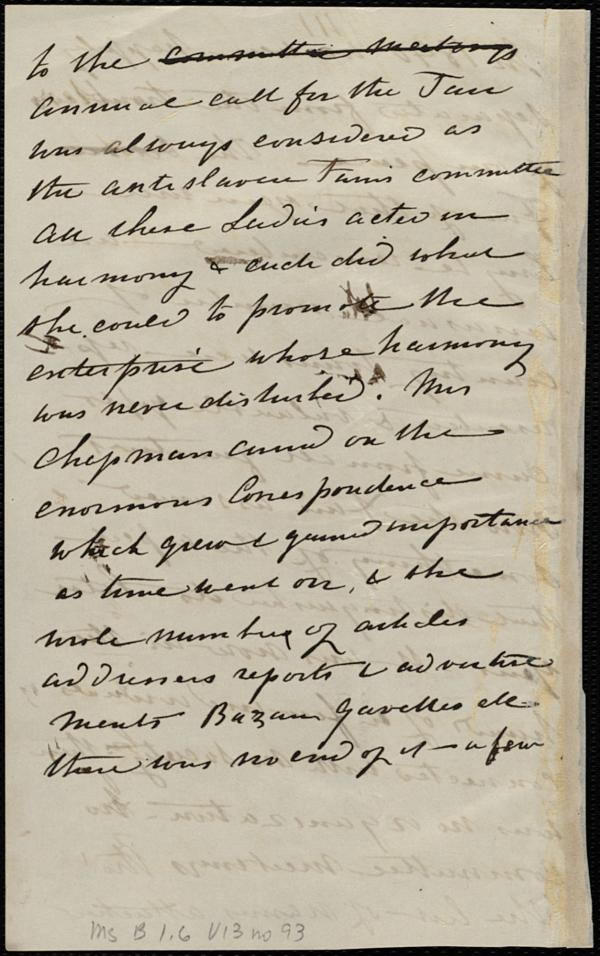 to the committee meetings
annual call for the Fair
was always considered as
the antislavery Fair's committee
all these Ladies acted in
harmony & each did what
she could to promote the
enterprise whose harmony
was never disturbed. Mrs
Chapman carried on the
enormous Correspondence
which grew & gained importance
as time went on, & she
wrote numbers of articles
addresses reports & advertise
ments Bazaar Gazettes etc
there was no end of it — a few
Ms B 1.6 V13 no 93